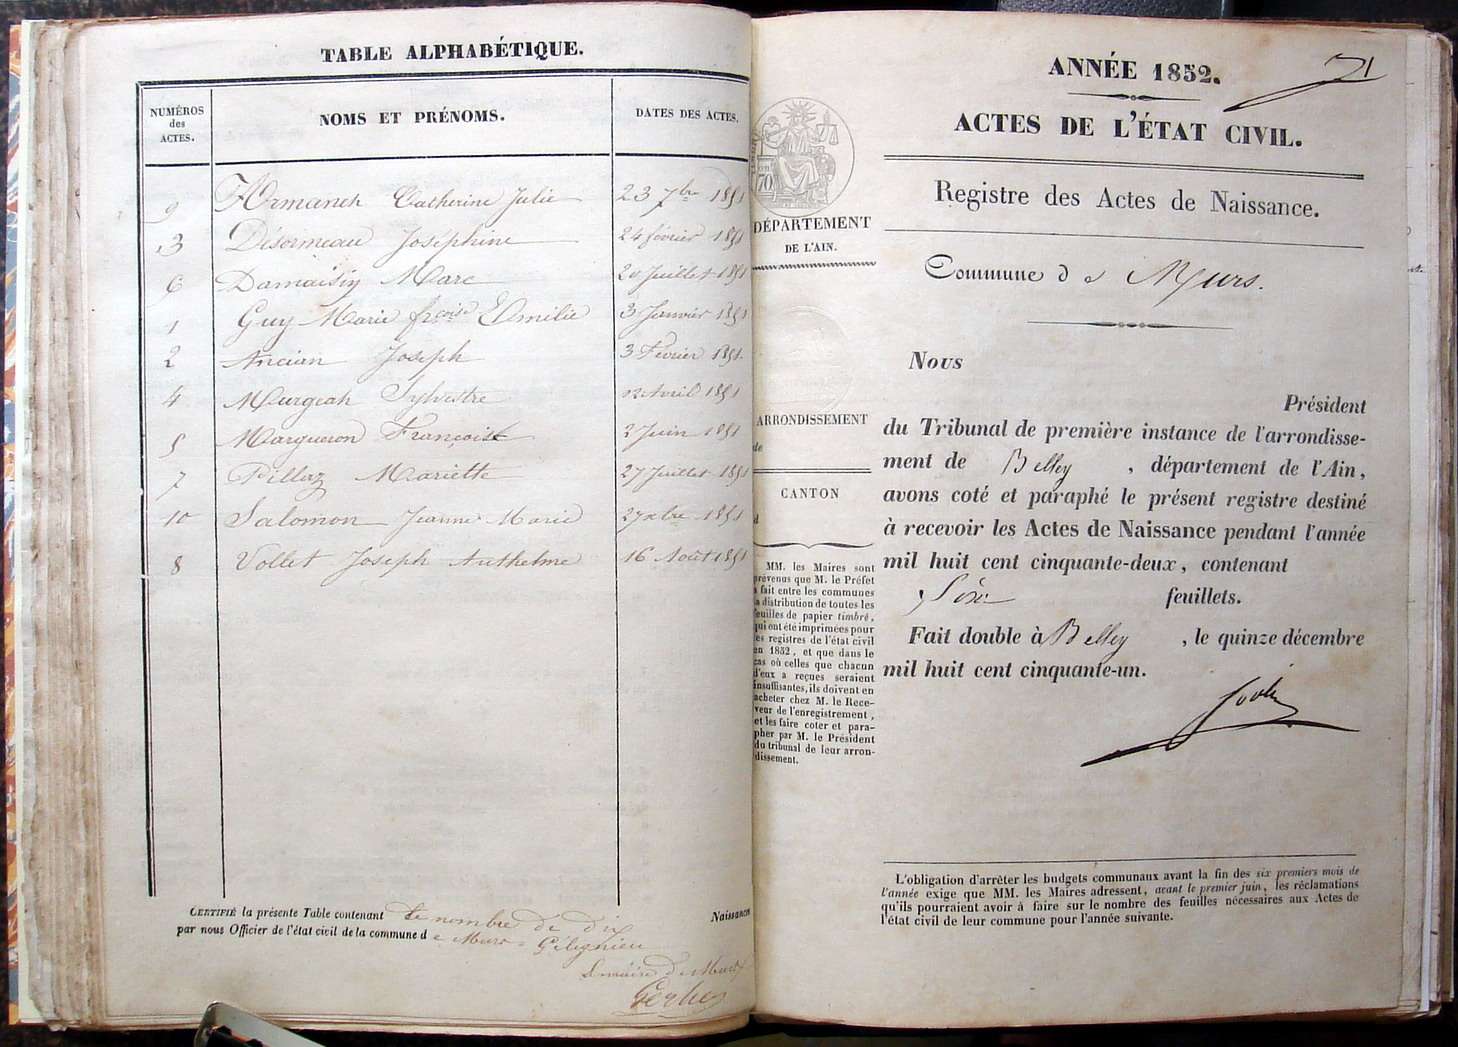 TABLE ALPHABÉTIQUE.
NUMÉROS des ACTES.
NOMS ET PRÉNOMS.
DATES DES ACTES.
9 Catherine Julie 23 7bre 1851
3 Désormeau Joséphine 24 février 1851
6 Damaisin Marc 20 Juillet 1851
1 Guy Marie frcoise Emilie 3 Janvier 1851
2 Ancian Joseph 3 Février 1851.
4 Murgeah Sylvestre 12 Avril 1851
5 Margueron Françoise 2 Juin 1851
7 Pillaz Mariette 27 Juillet 1851
10 Salomon Jeanne Marie 27 xbre 1851
8 Vollet Joseph Anthelme 16 Août 1851
CERTIFIÉ la présente Table contenant le nombre de dix Naissances
par nous Officier de l'état civil de la commune de Murs-Gélignieu
Le maire de Murs
Gerbes
71
ANNÉE 1852.
ACTES DE L'ÉTAT CIVIL.
Registre des Actes de Naissance.
Commune d e Murs.
70
DÉPARTEMENT
DE L'AIN.
ARRONDISSEMENT
de
CANTON
d
MM. les Maires sont
prévenus que M. le Préfet
a fait entre les communes
la distribution de toutes les
feuilles de papier timbré,
qui ont été imprimées pour
les registres de l'état civil
en 1852, et que dans le
cas où celles que chacun
d'eux a reçues seraient
insuffisantes, ils doivent en
acheter chez M. le Rece-
veur de l'enregistrement,
et les faire coter et para-
pher par M. le Président
du tribunal de leur arron-
dissement.
Nous
Président
du Tribunal de première instance de l'arrondisse-
ment de Belley, département de l'Ain,
avons coté et paraphé le présent registre destiné
à recevoir les Actes de Naissance pendant l'année
mil huit cent cinquante-deux, contenant
Six feuillets.
Fait double à Belley, le quinze décembre
mil huit cent cinquante-un.
L'obligation d'arrêter les budgets communaux avant la fin des six premiers mois de
l'année exige que MM. les Maires adressent, avant le premier juin, les réclamations
qu'ils pourraient avoir à faire sur le nombre des feuilles nécessaires aux Actes de
l'état civil de leur commune pour l'année suivante.